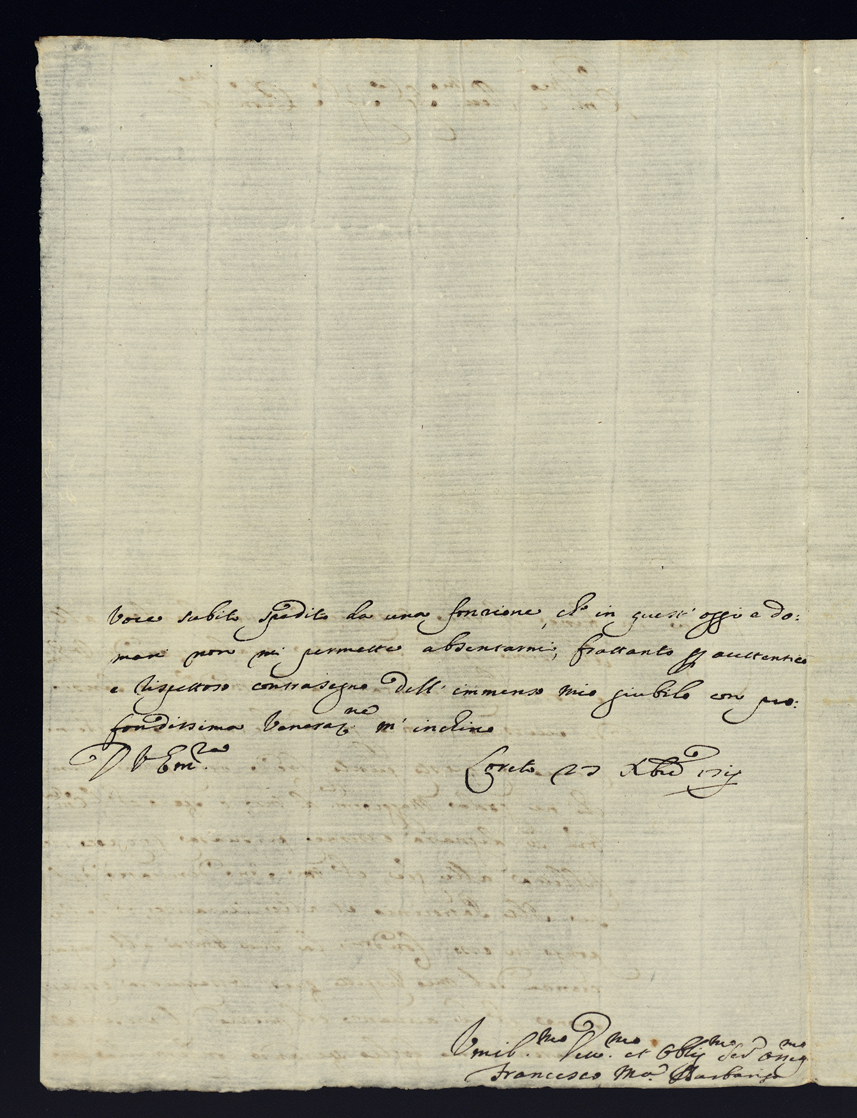 voce subito spedito da una fonzione, che in quest' oggi e do:
mari non mi permette absentarmi; frattanto per auttentico
e rispettoso contrasegno dell' immenso mio giubilo con pro:
fondissima Veneraz.ne m' inchino
D V Em.za
Loreto 23 Xbre
Vmil.mo Deu.mo et Oblig.mo Ser.
Francesco Ma. Barbarigo